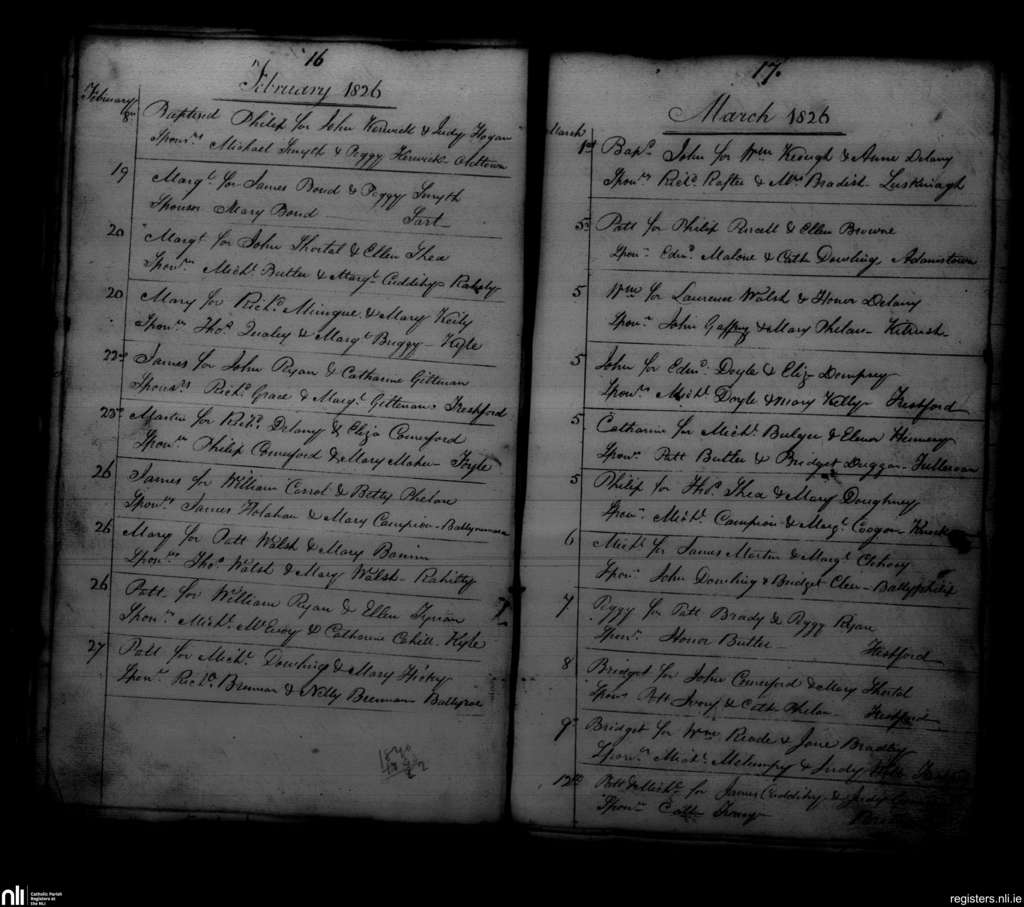 16
February 1826
February
18th Baptised Philip for John Kerwick & Judy Hogan
Sponrs Michael Smyth & Peggy Kerwick Oldtown
19 Margt for James Bond & Peggy Smyth
Sponsor Mary Bond Tart
20 Margt for John Shortal & Ellen Shea
Sponrs Michl Butler & Margt Cuddihy
20 Mary for Richd & Mary Keily
Sponrs Thos Qualey & Margt Buggy Kyle
22nd James for John Ryan & Catharine Gittenan
Sponsrs Richd Grace & Margt Gittenan Freshford
Martin for Richd Delany & Eliza Comerford
Sponrs Philip Comerford & Mary Maher Foyle
26 James for William Carrol & Betty Phelan
Sponrs James Holahan & Mary Campion
26 Mary for Patt Walsh & Mary
Sponrs Thos Walsh & Mary Walsh
26 Patt for William Ryan & Ellen
Sponrs Michl McEvoy & Catharine Cahill Kyle
27 Patt for Michl Dowling & Mary Hickey
Sponrs Richd Brennan & Nelly Brennan Ballyroe
17.
March 1826
March
1st Bapd John for Wm Keough & Anne Delany
Sponrs Richd Rafter & Mrs Bradish
5 Patt for Philip Purcell & Ellen Browne
Sponrs Edmd Malone & Cath Dowling Adamstown
5 Wm for Laurence Walsh & Honor Delany
Sponrs John Gaffny & Mary Phelan Kilrush
5 John for Edmd Doyle & Eliz Dempsey
Sponrs Michl Doyle & Mary Kelly Freshford
5 Catharine for Michl Bulger & Elenor
Sponrs Patt Butler & Bridget Duggan
5 Philip for Thos Shea & Mary Doughney
Sponrs Michl Campion & Margt Coogan
6 Michl for James Martin & Margt
Sponrs John Dowling & Bridget Ballyphilip
7 Peggy for Patt Brady & Peggy Ryan
Sponr Honor Butler Freshford
8 Bridget for John Comerford & Mary Shortal
Sponrs Patt & Cath Phelan Freshford
9th Bridget for Wm Reade & Jane Bradley
Sponrs Michl & Judy
12th Patt & Michl for James Cuddihy &
Sponrs Cath
registers.nli.ie
nli
Catholic Parish
Registers at
the NLI